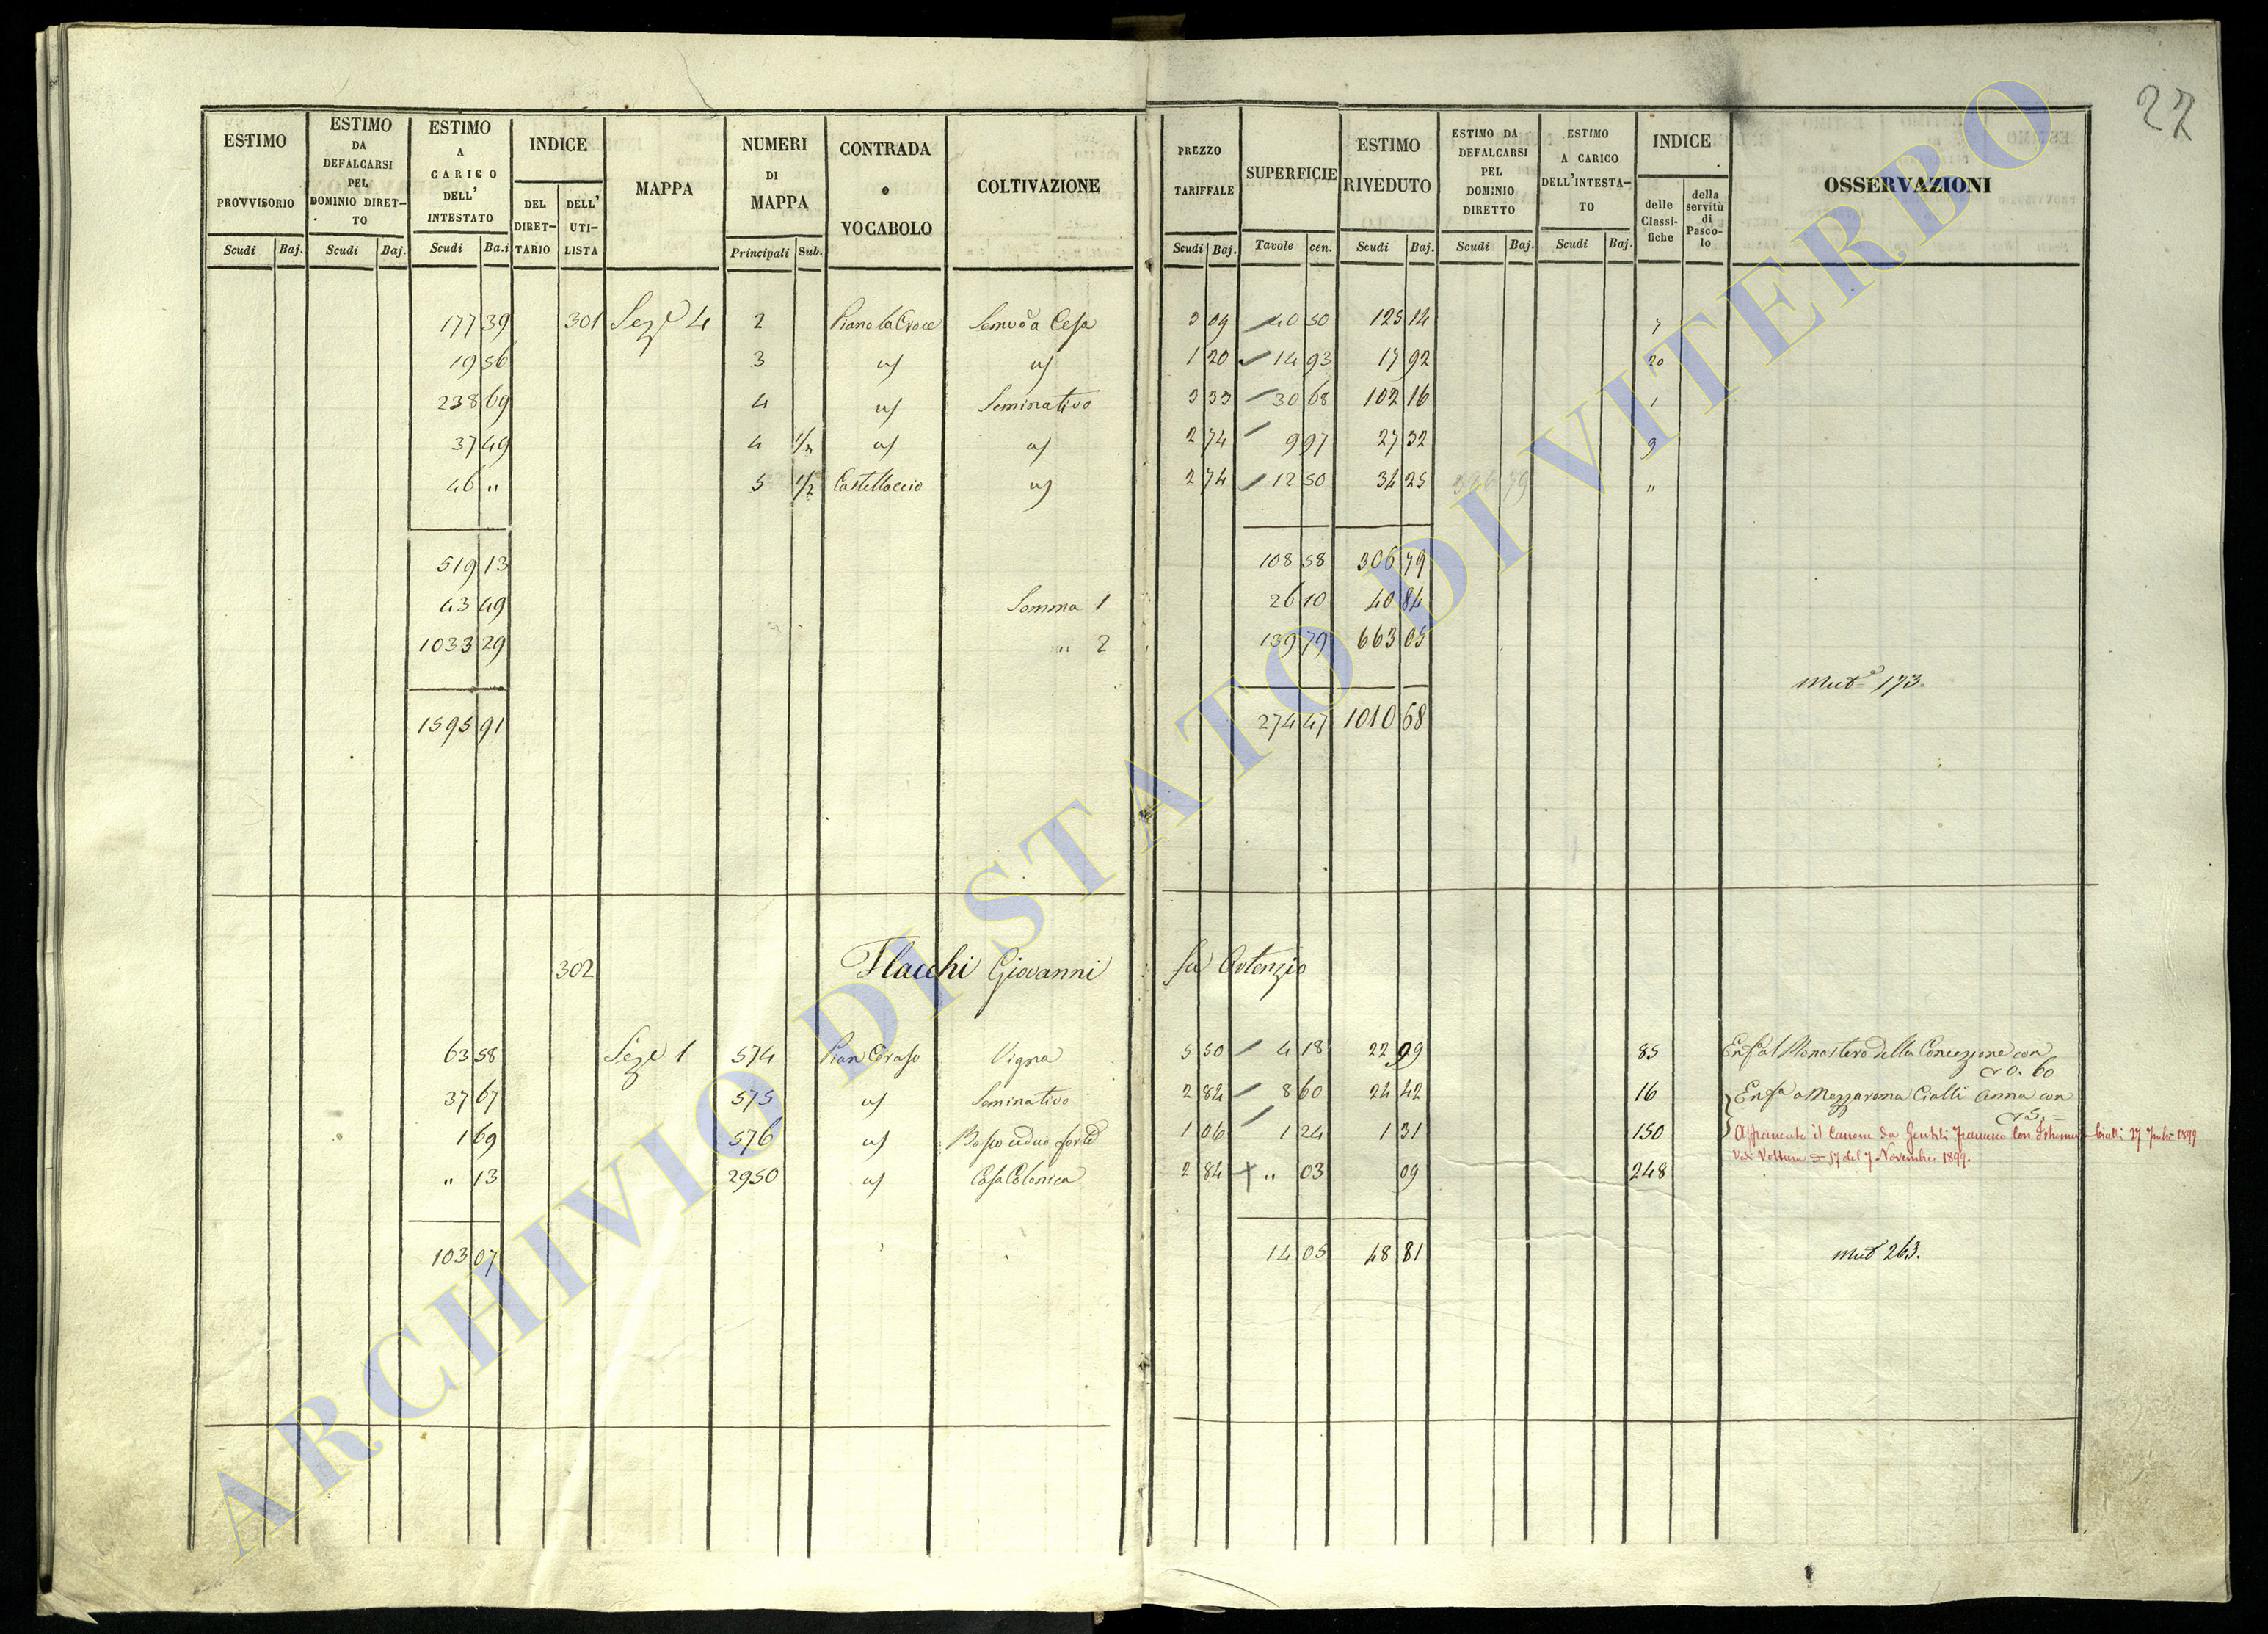 27
ESTIMO PROVVISORIO Scudi Baj.
ESTIMO DA DEFALCARSI PEL DOMINIO DIRETTO Scudi Baj.
ESTIMO A CARICO DELL' INTESTATO Scudi Ba.i
INDICE DEL DIRETTARIO DELL' UTILISTA
MAPPA
NUMERI DI MAPPA Principali Sub.
CONTRADA o VOCABOLO
COLTIVAZIONE
PREZZO TARIFFALE Scudi Baj.
SUPERFICIE Tavole cen.
ESTIMO RIVEDUTO Scudi Baj.
ESTIMO DA DEFALCARSI PEL DOMINIO DIRETTO Scudi Baj.
ESTIMO A CARICO DELL'INTESTATO Scudi Baj.
INDICE delle Classifiche della servitù di Pascolo
OSSERVAZIONI
177 39 301 Sez.e 4 2 Piano la Croce Semvo a Cesa 3 09 40 50 125 14 7
19 56 3 " " 1 20 14 93 17 92 20
238 69 4 " Seminativo 3 33 30 68 102 16 1
37 49 4 1/2 " " 2 74 9 97 27 32 9
46 " 5 1/2 Castellaccio " 2 74 12 50 34 25 326 79 "
519 13 108 58 306 79
43 49 Somma 1 26 10 40 84
1033 29 " 2 139 79 663 05
Mut.e 173.
1595 91 274 47 1010 68
302 Flacchi Giovanni fu Ortenzio
63 58 Sez.e 1 574 Pian Ceraso Vigna 5 50 4 18 22 99 85 Enf.a al Monastero della Concezione con
0. 60
37 67 575 " Seminativo 2 84 8 60 24 42 16 Enf.a a Mezzaroma Cialli Anna con
5. =
1 69 576 " Bosco ceduo forte 1 06 1 24 1 31 150 Affrancato il Canone da Gentili Francesco con Istrumento Cialli 27 1899
" 13 2950 " Casa Colonica 2 84 " 03 09 248 Voltura 57 del 7 Novembre 1899.
103 07 14 05 48 81 Mut 263.
ARCHIVIO DI STATO DI VITERBO